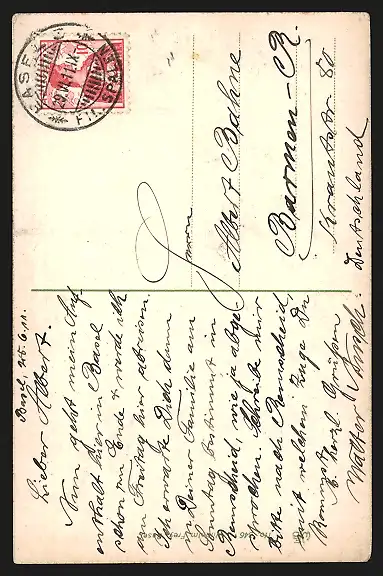 Basel, 25.6.11.
Lieber Albert.
Nun geht mein Auf
enthalt hier in Basel
schon zu Ende & werde ich
am Freitag hier abreisen.
Ich erwarte Dich dann
m Deiner Familie am
Sonntag bestimmt in
Remscheid, wie ja abge
sprochen. Schreibe mir
bitte nach Remscheid,
mit welchem Zuge Du
kommst.
& herzl. Grüßen
Walter
Herrn
Albert Bahne
Barmen-R.
Krautstr 80
Deutschland
BASEL
FIL. SPALEN
10